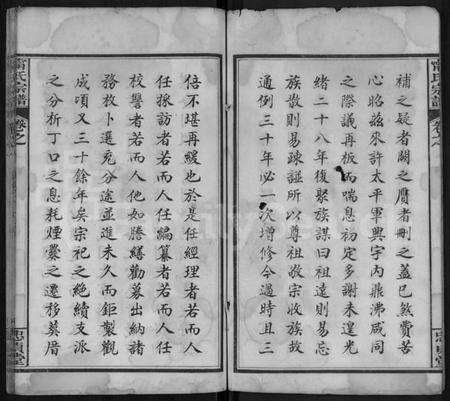 補之疑者闕之贋者刪之蓋已煞費苦
心昭茲來許太平軍興宇內鼎沸咸同
之際議再板而喘息初定多謝未遑光
緒二十八年復聚族謀曰祖遠則易忘
族散則易疎謹所以尊祖敬宗收族故
通例三十年必一次增修今過時且三
倍不堪再緩也於是任經理者若而人
任採訪者若而人任編纂者若而人任
校讐者若而人他如謄繕勸募出納諸
務枚卜選充分途並進未久而鉅製觀
成頃又三十餘年矣宗祀之絶續支派
之分析丁口之息耗煙爨之遷移墓厝
氏宗譜
卷之